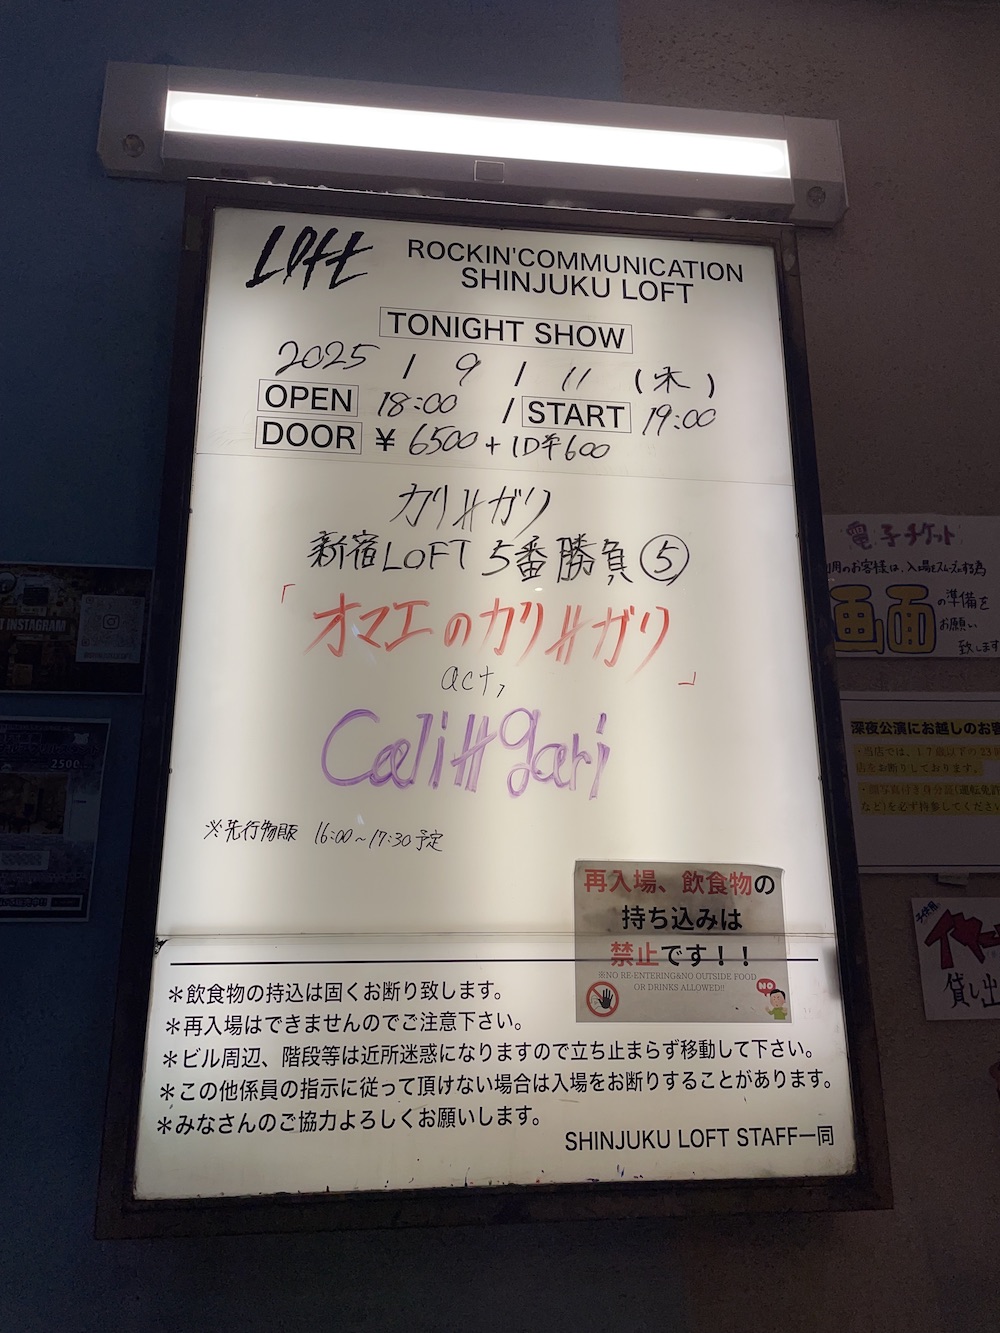 LOFT
ROCKIN'COMMUNICATION
SHINJUKU LOFT
TONIGHT SHOW
2025 / 9 / 11 (木)
OPEN 18:00 / START 19:00
DOOR ¥ 6500 + 1D¥600
カリ#ガリ
新宿LOFT 5番勝負⑤
「オマエのカリ#ガリ」
act,
Cali#gari
※先行物販 16:00~17:30予定
再入場、飲食物の
持ち込みは
禁止です!!
※NO RE-ENTERING&NO OUTSIDE FOOD
OR DRINKS ALLOWED!!
NO
*飲食物の持込は固くお断り致します。
*再入場はできませんのでご注意下さい。
*ビル周辺、階段等は近所迷惑になりますので立ち止まらず移動して下さい。
*この他係員の指示に従って頂けない場合は入場をお断りすることがあります。
*みなさんのご協力よろしくお願いします。
SHINJUKU LOFT STAFF一同
電子チケット
用のお客様は、入場をスムーズにする為
画面の準備を
お願い
致します
深夜公演にお越しのお客
・当店では、17歳以下の23
店をお断りしております。
・顔写真付き身分証(運転免許
など)を必ず持参してくださ
子供用
イヤー
貸し出
T INSTAGRAM
2500